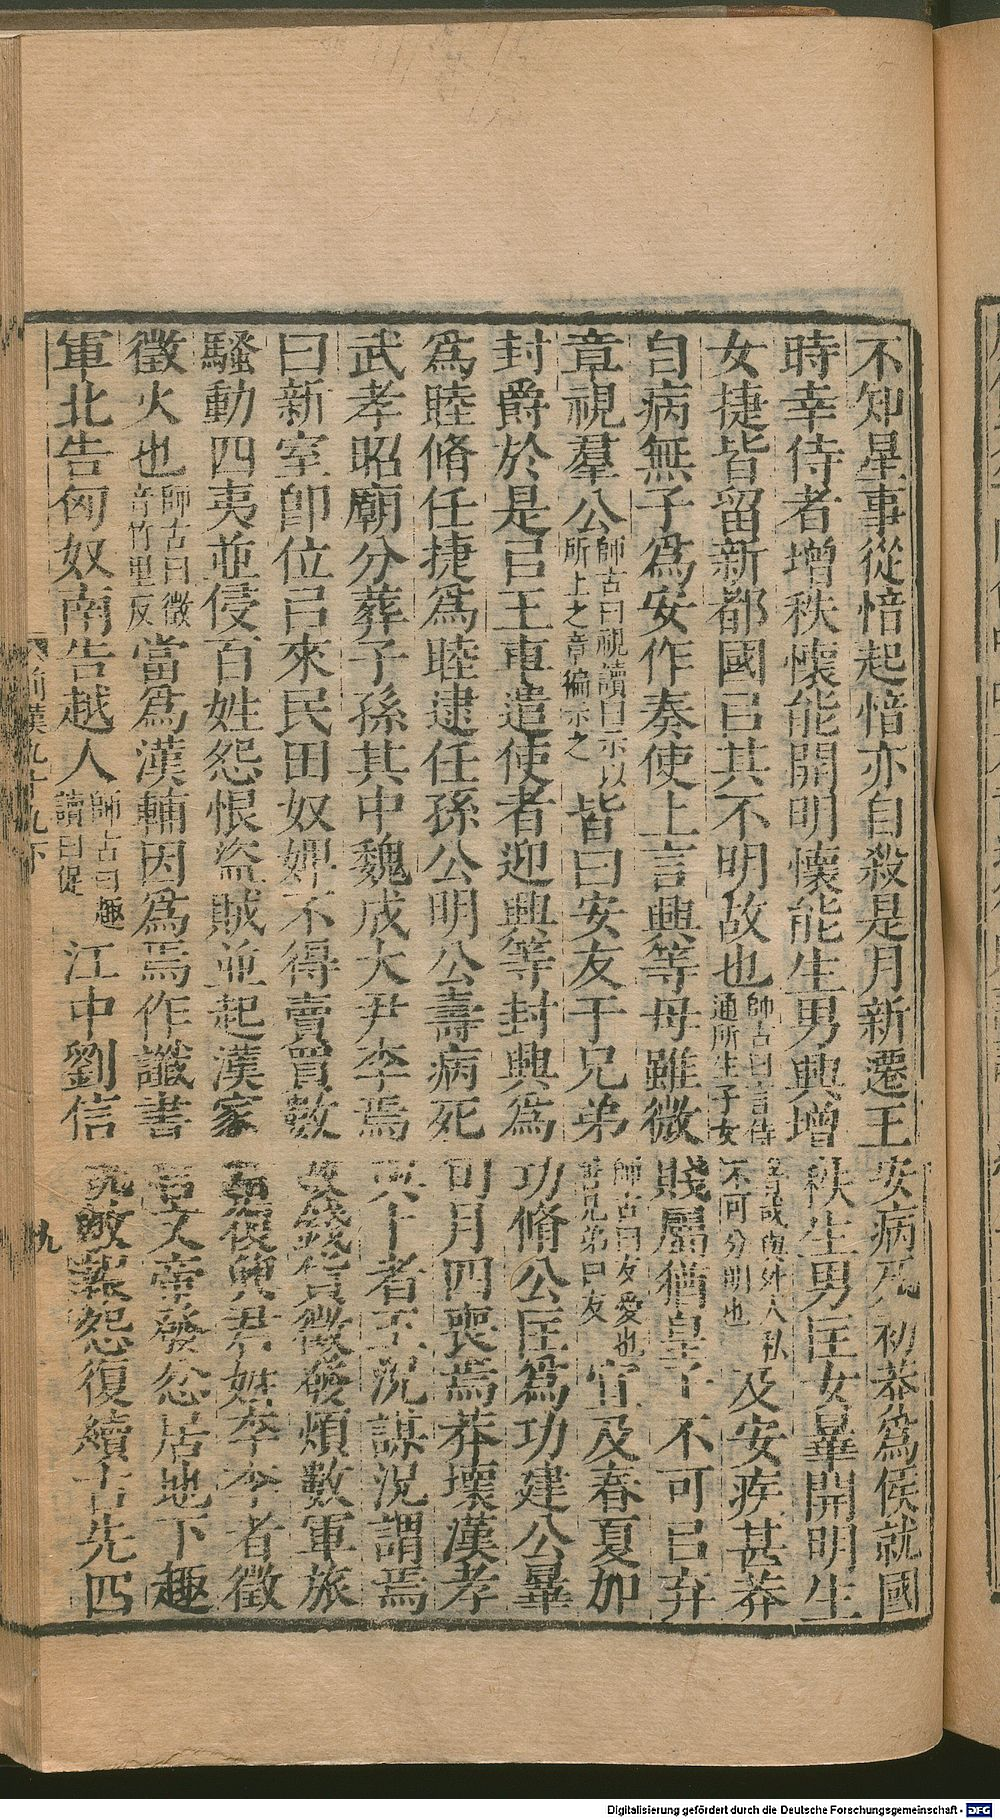 不知星事從愔起愔亦自殺是月新遷王安病死初莽為侯就國
時幸侍者增秩懷能開明懷能生男興增秩生男匡女曅開明生
女捷皆留新都國㠯其不明故也師古曰言侍通所生子女等或與外人私不可分明也及安疾甚莽
自病無子為安作奏使上言興等母雖微賤屬猶皇子不可㠯弃
章視羣公師古曰視讀曰示以所上之章徧示之皆曰安友于兄弟師古曰友愛也善兄弟曰友宜及春夏加
封爵於是㠯王車遣使者迎興等封興為功脩公匡為功建公曅
為睦脩任捷為睦逮任孫公明公壽病死旬月四喪焉莽壞漢孝
武孝昭廟分葬子孫其中魏成大尹李焉與卜者王況謀況謂焉
曰新室即位㠯來民田奴婢不得賣買數改錢貨徵發煩數軍旅
騷動四夷並侵百姓怨恨盜賊並起漢家當復興君姓李李者徵
徵火也師古曰徵音竹里反當為漢輔因為焉作讖書言文帝發忿居地下趣
軍北告匈奴南告越人師古曰趣讀曰促江中劉信執敵報怨復續古先四
前漢九十九下
九
Digitalisierung gefördert durch die Deutsche Forschungsgemeinschaft - DFG